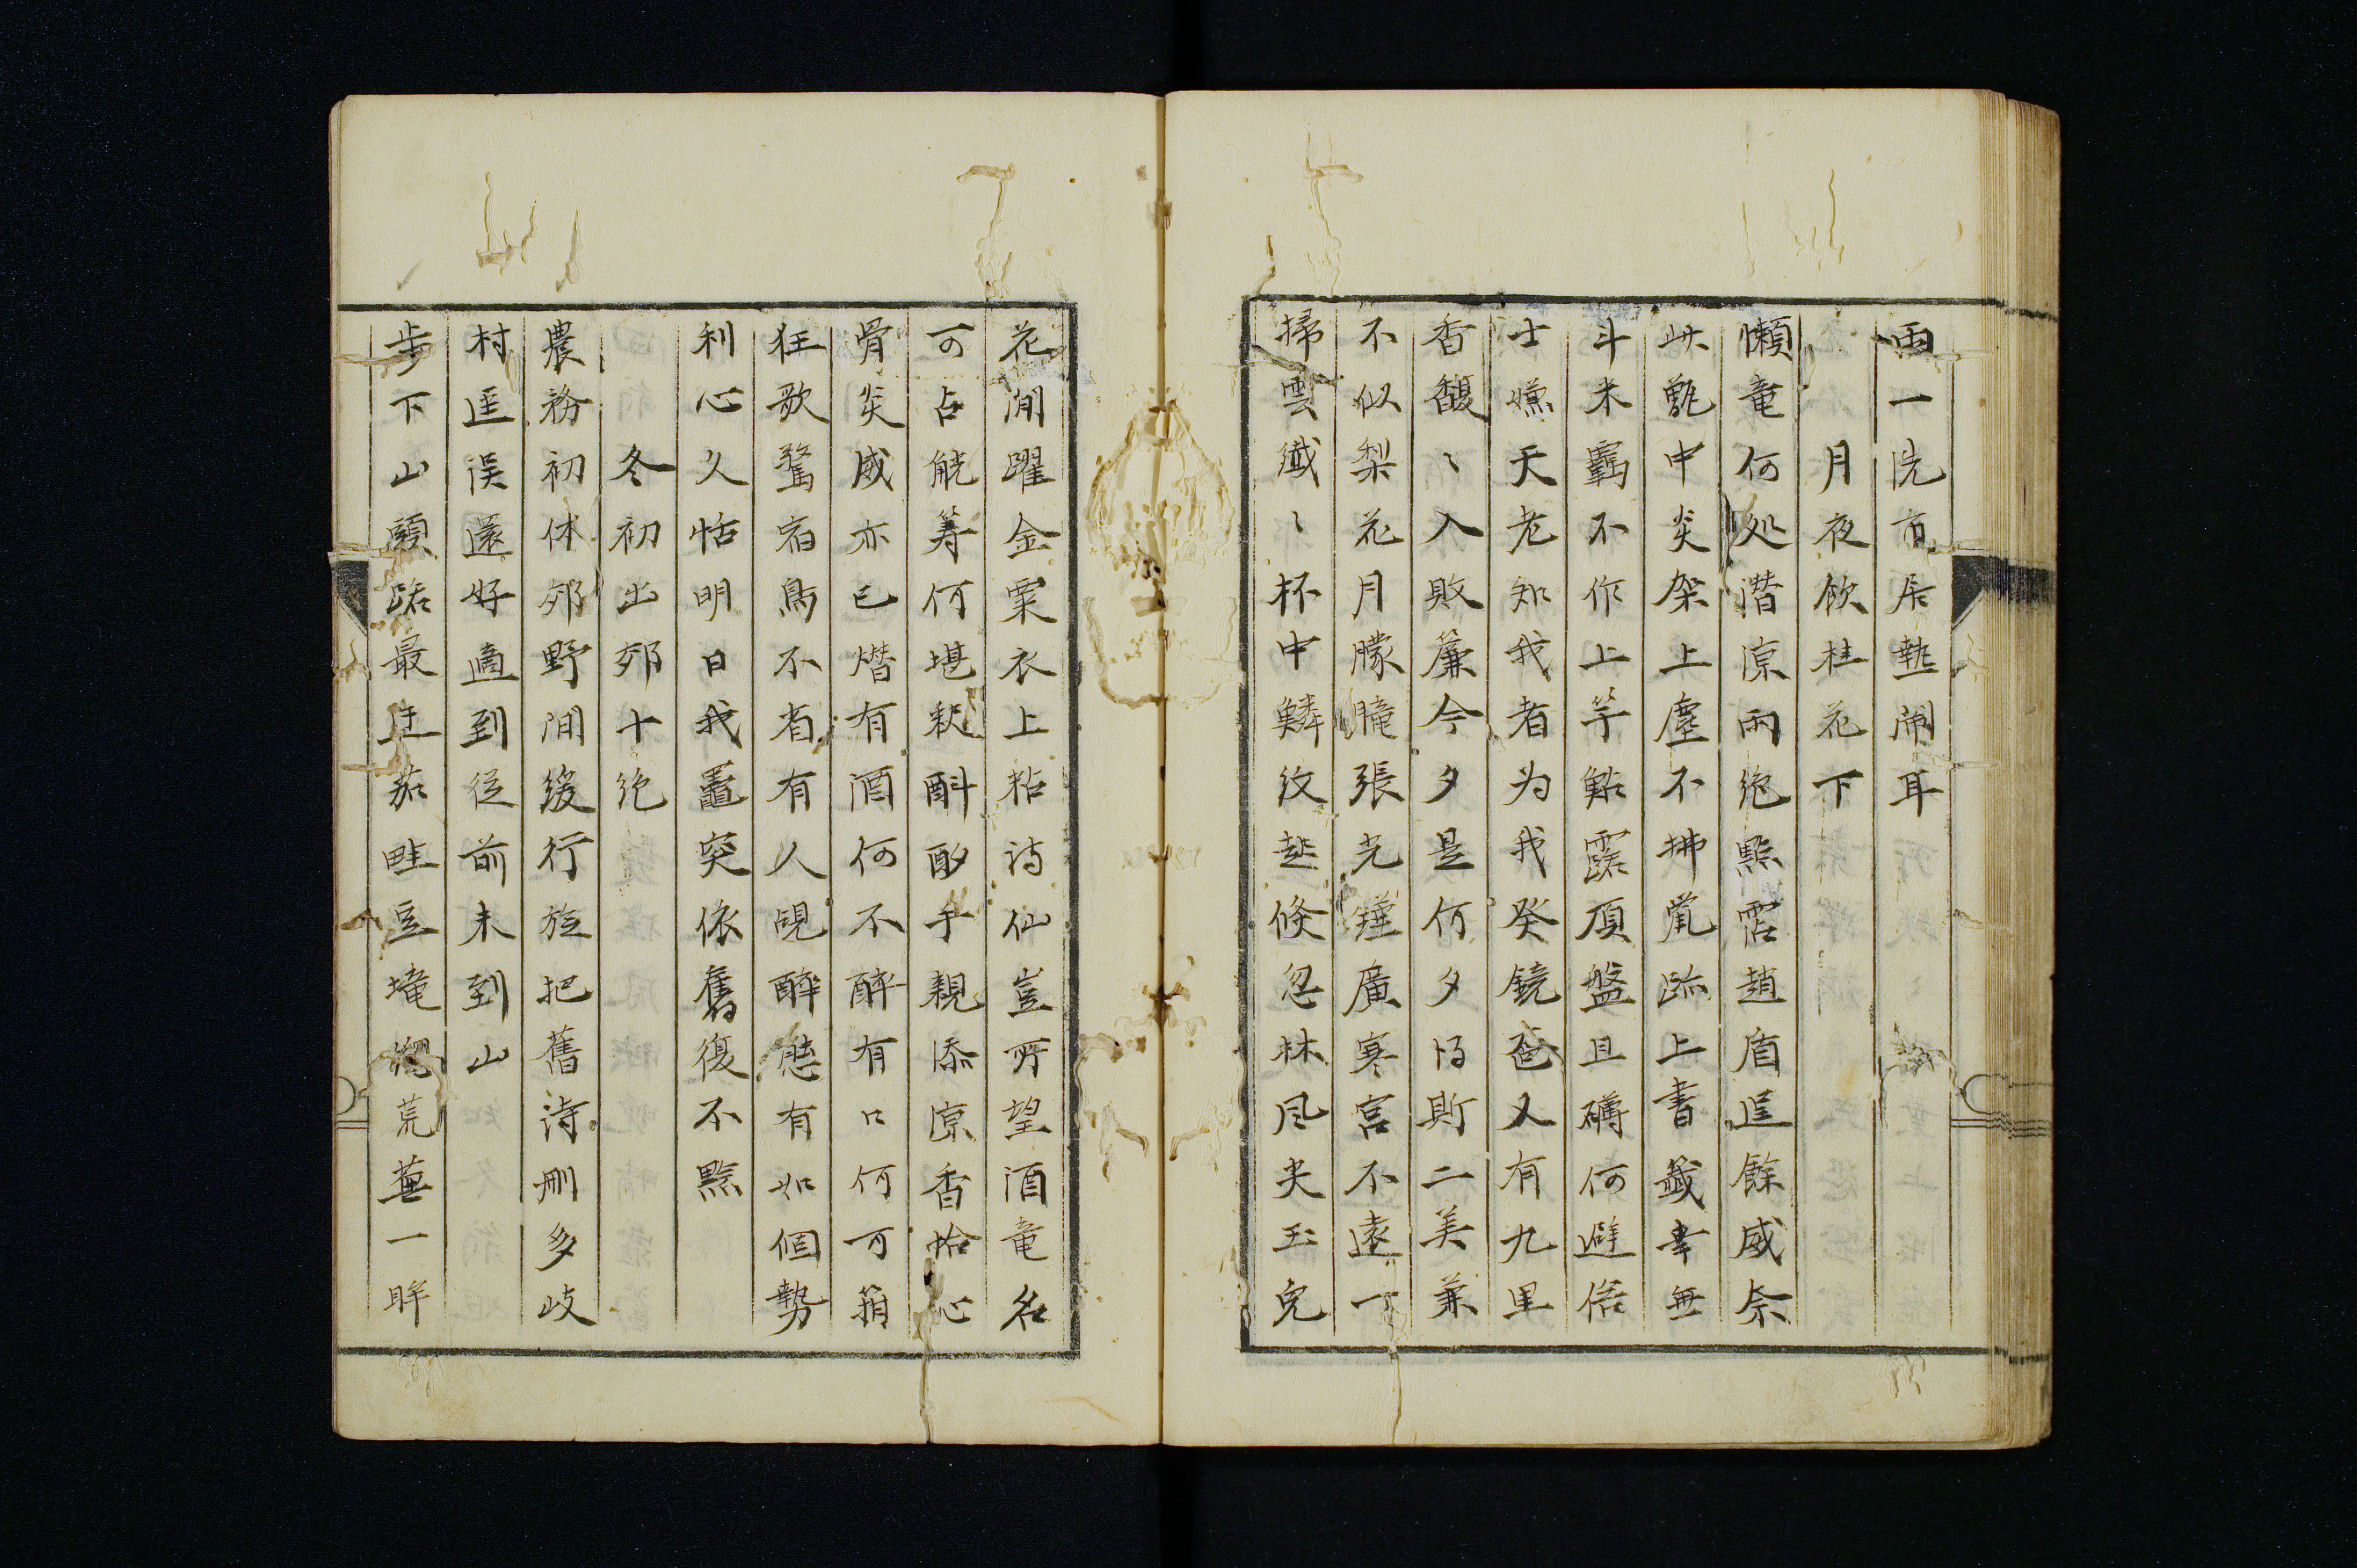 雨一洗市居熱鬧耳
月夜飲桂花下
懶竜何処潛涼雨絶點霑趙盾逞餘威奈
此甑中炎架上塵不拂䑓跡上書籤幸無
斗米羈不作上竿鮎露頂盤且礴何避俗
士嫌天老知我者为我癸鏡奩又有九里
香馥〻入敗簾今夕是何夕得斯二美兼
不似梨花月朦朧張光鍾廣寒宮不遠一
掃雲纖〻杯中鱗紋起倏忽林風夹玉兔
花間躍金粟衣上粘詩仙豈所望酒竜名
可占觥筹何堪釈斟酌手親添涼香拾心
骨炎威亦已熸有酒何不醉有口何可箝
狂歌驚宿鳥不省有人覘醉態有如個勢
利心久恬明日我竈突依舊復不黔
冬初出郊十絶
農務初休郊野間緩行旋把舊詩刪多歧
村逕误還好適到從前未到山
步下山頭路最迂茄畦豆墥總荒蕪一眸